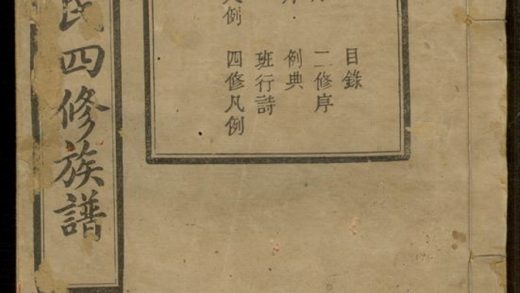 目錄
二修序
例典
班行詩
凡例
四修凡例
氏四修族譜